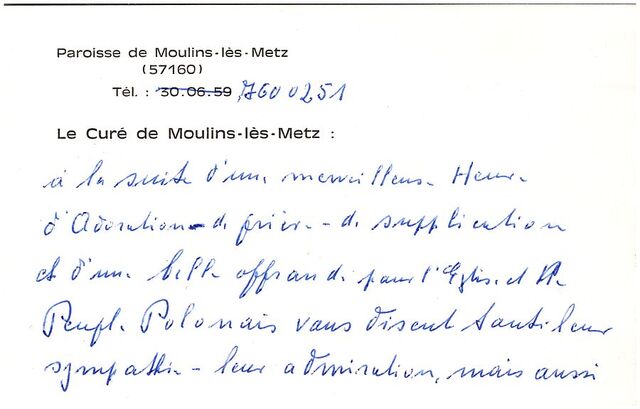 Paroisse de Moulins-lès-Metz
(57160)
Tél. : 30.06.59 7600251
Le Curé de Moulins-lès-Metz :
à la suite d'une merveilleuse Heure
d'Adoration - de prière - de supplication
et d'une belle offrande pour l'Eglise et le
Peuple Polonais vous disent leur
sympathie - leur admiration, mais aussi